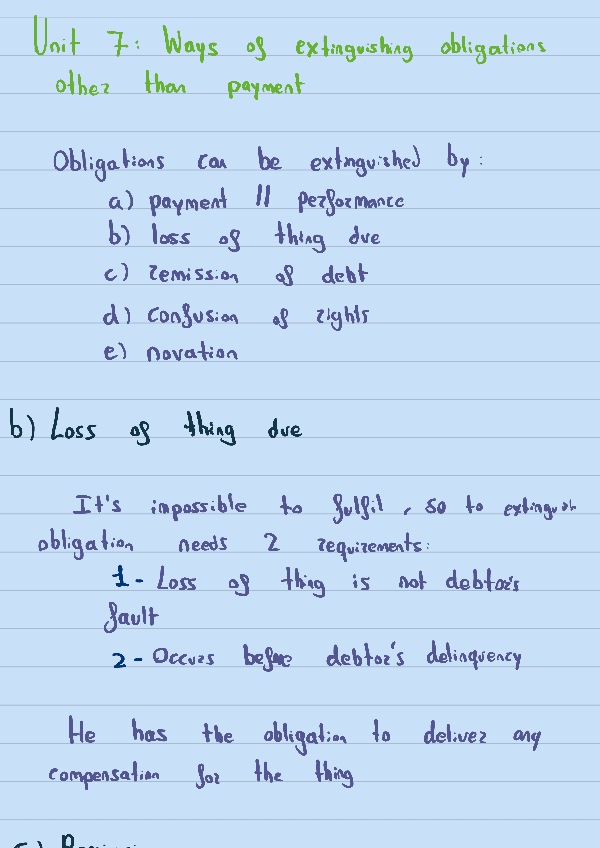 Unit 7: Ways of extinguishing obligations
other than payment
Obligations can be extinguished by:
a) payment // performance
b) loss of thing due
c) remission of debt
d) confusion of rights
e) novation
b) Loss of thing due
It's impossible to fulfil, so to extinguish
obligation needs 2 requirements:
1- Loss of thing is not debtor's
fault
2- Occurs before debtor's delinquency
He has the obligation to deliver any
compensation for the thing
c)